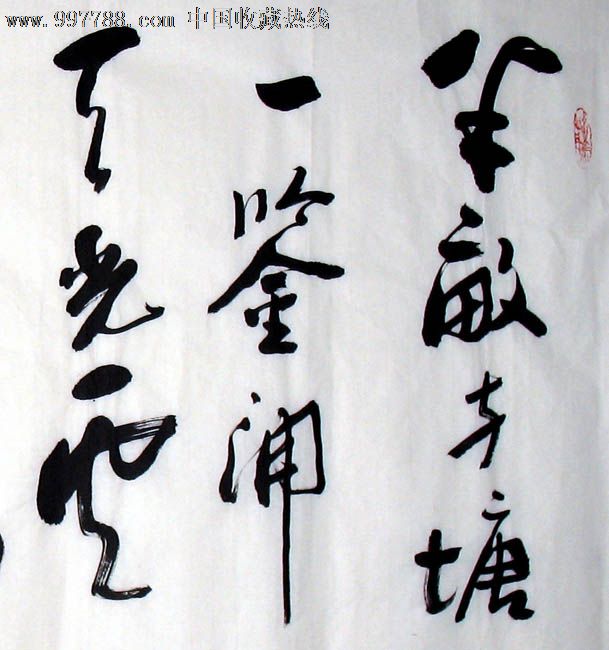 www.997788.com 中国收藏热线
半畝方塘
一鑒開
天光雲